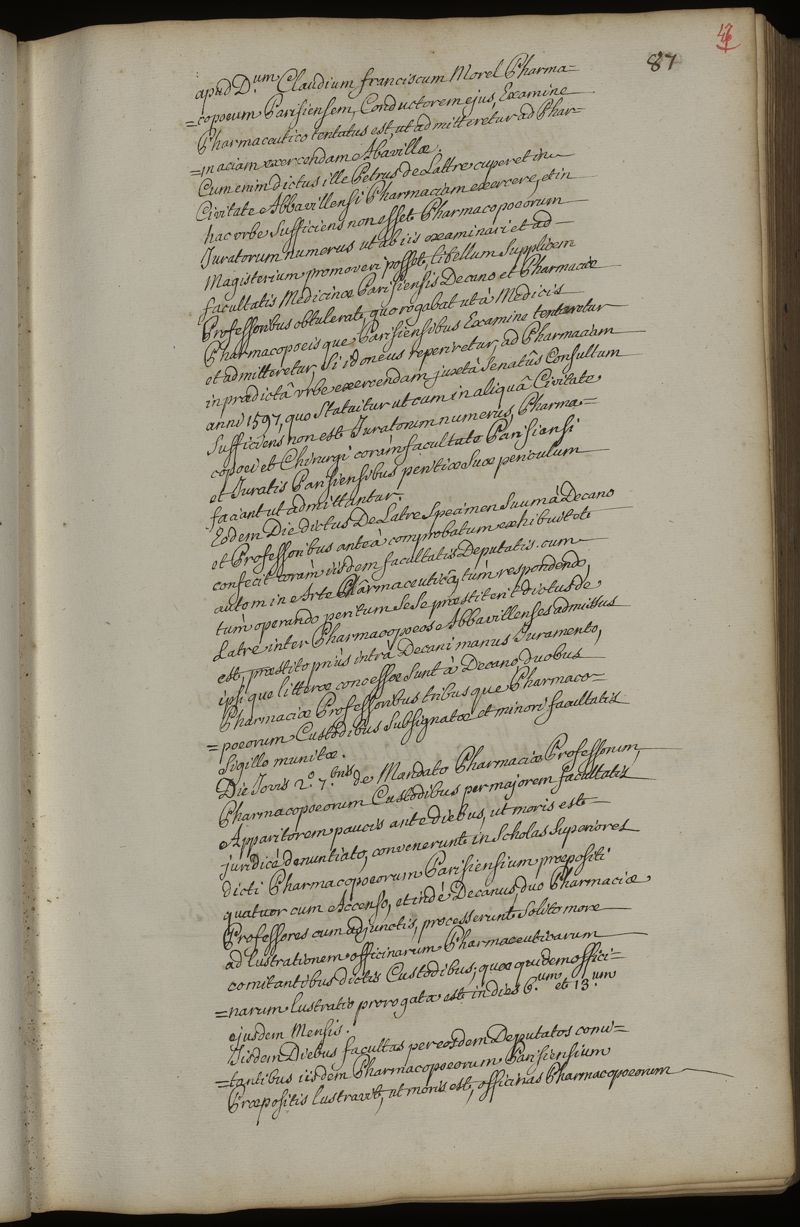 87
apud D.um Claudium franciscum Morel Pharma=
=copoeum Parisiensem, Conductorem ejus, Examine
Pharmaceutico tentatus est, ut admitteretur ad Phar=
=maciam exercendam Abavillæ.
Cum enim dictus ille Petrus de Lattre cuperet in
Civitate Abbavillensi Pharmaciam exercere, et in
hac orbe sufficiens non esset Pharmacopoeorum
Juratorum numerus ut ab iis examinari et ad
Magisterium promoveri posset, libellum supplicem
facultatis Medicinæ Parisiensis Decano et Pharmaciæ
Professoribus obtulerat, quo rogabat ut à Medicis
Pharmacopoeis que Parisiensibus Examine tentaretur
et admitteretur, si idoneus reperiretur, ad Pharmaciam
in prædictâ urbe exercendam juxtà Senatûs Consultum
anni 1597, quo statuitur ut cum in aliquâ Civitate
sufficiens non est Juratorum numerus, Pharma=
copoei et Chirurgi coràm facultate Parisiensi
et Juratis Parisiensibus peritiæ suæ periculum
faciant ut admittantur.
Eodem Die dictus De Latre specimen suum à Decano
et Professoribus anteà comprobatum exhibuit et
confecit coràm iisdem facultatis Deputatis. cum
autem in Arte Pharmaceuticâ, tùm respondendo,
tùm operando peritum se se præstiterit dictus de
Latre inter Pharmacopoeos Abbavillenses admissus
est, præstito priùs intrà Decani manus Juramento,
ipsi que litteræ concessæ sunt à Decano, duobus
Pharmaciæ Professoribus tribus que Pharmaco=
=poeorum Custodibus subsignatæ et minori facultatis
Sigillo munitæ.
Die Jovis 2.° 7.bris de Mandato Pharmaciæ Professorum,
Pharmacopoeorum Custodibus per majorem facultatis
Apparitorem paucis ante diebus, ut moris est
juridicè denuntiato, convenerunt in Scholas Superiores
dicti Pharmacopoeorum Parisiensium præpositi
quatuor cum Accenso, et indè Decanus, duo Pharmaciæ
Professores cum adjunctis, processerunt solito more
ad lustrationem officinarum Pharmaceuticarum
comitantibus dictis Custodibus; quæ quidem offici=
=narum lustratio prorogata est in dies 6.um et 13.um
ejusdem Mensis.
Iisdem Diebus facultas per eosdem Deputatos comi=
=tantibus iisdem Pharmacopoeorum Parisiensium
Præpositis lustravit, ut moris est, officinas Pharmacopoeorum